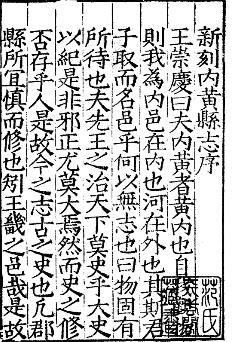 新刻内黃縣志序
王崇慶曰夫内黃者黃内也自
則我為内邑在内也河在外也其斯君
子取而名邑乎何以無志也曰物固有
所待也夫先王之治天下莫史乎大史
以紀是非邪正尤莫大焉然而史之修
否存乎人是故今之志古之史也凡郡
縣所宜慎而修也矧王畿之邑哉是故
范氏